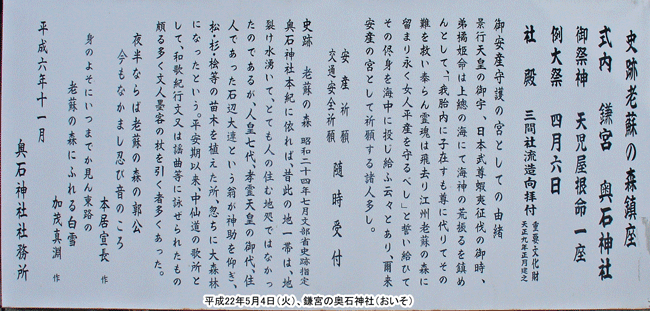 史跡老蘇の森鎮座
式内 鎌宮 奥石神社
御祭神 天児屋根命 一座
例大祭 四月六日
社殿 三間社流造向拝付 重要文化財 天正九年正月建之
御安産守護の宮としての由緒
景行天皇の御宇、日本武尊蝦夷征伐の御時、
弟橘姫命は上總の海にて海神の荒振るを鎮め
んとして、「我胎内に子在すも尊に代りてその
難を救い奉らん霊魂は飛去り江州老蘇の森に
留まり永く女人平産を守るべし」と誓い給ひて
その侭身を海中に投じ給ふ云々とあり、爾来
安産の宮として祈願する諸人多し。
安産祈願
交通安全祈願 随時受付
史跡 老蘇の森 昭和二十四年七月文部省史跡指定
奥石神社本紀に依れば、昔此の地一帯は、地
裂け水湧いて、とても人の住む地処ではなかっ
たのであるが、人皇七代、孝霊天皇の御代、住
人であった石辺大連という翁が神助を仰ぎ、
松・杉・桧等の苗木を植えた所、忽ちに大森林
になったという。平安期以来、中仙道の歌所と
して、和歌紀行文又は謡曲等に詠せられたもの
頗る多く文人墨客の杖を引く者多くあった。
夜半ならば老蘇の森の郭公
今もなかまし忍び音のころ
本居宣長 作
身のよそにいつまでか見ん東路の
老蘇の森にふれる白雪
加茂真淵 作
平成六年十一月
奥石神社社務所
平成22年5月4日(火)、鎌宮の奥石神社(おいそ)